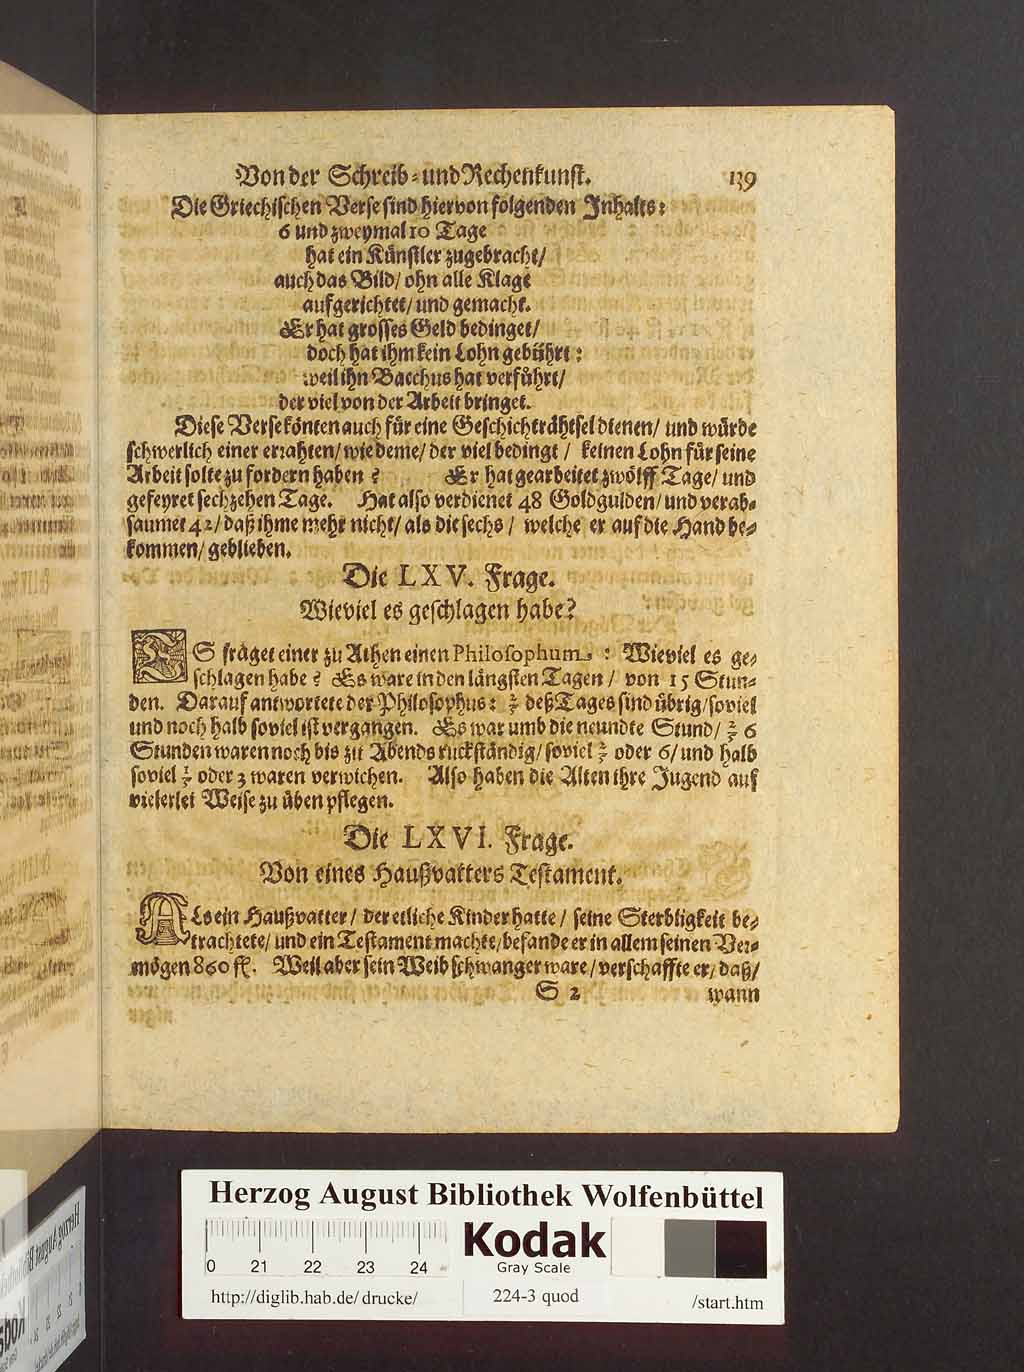 Von der Schreib- und Rechenkunst. 139
Die Griechischen Verse sind hiervon folgenden Inhalts:
6 und zweymal 10 Tage
hat ein Künstler zugebracht/
auch das Bild/ ohn alle Klage
aufgerichtet/ und gemacht.
Er hat grosses Geld bedinget/
doch hat ihm kein Lohn gebührt:
weil ihn Bacchus hat verführt/
der viel von der Arbeit bringet.
Diese Verse könten auch für eine Geschichträhtsel dienen/ und würde
schwerlich einer errahten/ wie deme/ der viel bedingt/ keinen Lohn für seine
Arbeit solte zu fordern haben? Er hat gearbeitet zwölff Tage/ und
gefeyret sechzehen Tage. Hat also verdienet 48 Goldgulden/ und verab-
saumet 42/ daß ihme mehr nicht/ als die sechs/ welche er auf die Hand be-
kommen/ geblieben.
Die LXV. Frage.
Wieviel es geschlagen habe?
ES fräget einer zu Athen einen Philosophum: Wieviel es ge-
schlagen habe? Es ware in den längsten Tagen/ von 15 Stun-
den. Darauf antwortete der Philosophus: 2/5 deß Tages sind übrig/ soviel
und noch halb soviel ist vergangen. Es war umb die neundte Stund/ 2/5 6
Stunden waren noch bis zu Abends ruckständig/ soviel 2/5 oder 6/ und halb
soviel 1/5 oder 3 waren verwichen. Also haben die Alten ihre Jugend auf
vielerlei Weise zu üben pflegen.
Die LXVI. Frage.
Von eines Haußvatters Testament.
ALs ein Haußvatter/ der etliche Kinder hatte/ seine Sterbligkeit be-
trachtete/ und ein Testament machte/ befande er in allem seinen Ver-
mögen 860 fl. Weil aber sein Weib schwanger ware/ verschaffte er/ daß/
S 2 wann
Herzog August Bibliothek Wolfenbüttel
0 21 22 23 24
Kodak
Gray Scale
http://diglib.hab.de/drucke/ 224-3 quod /start.htm